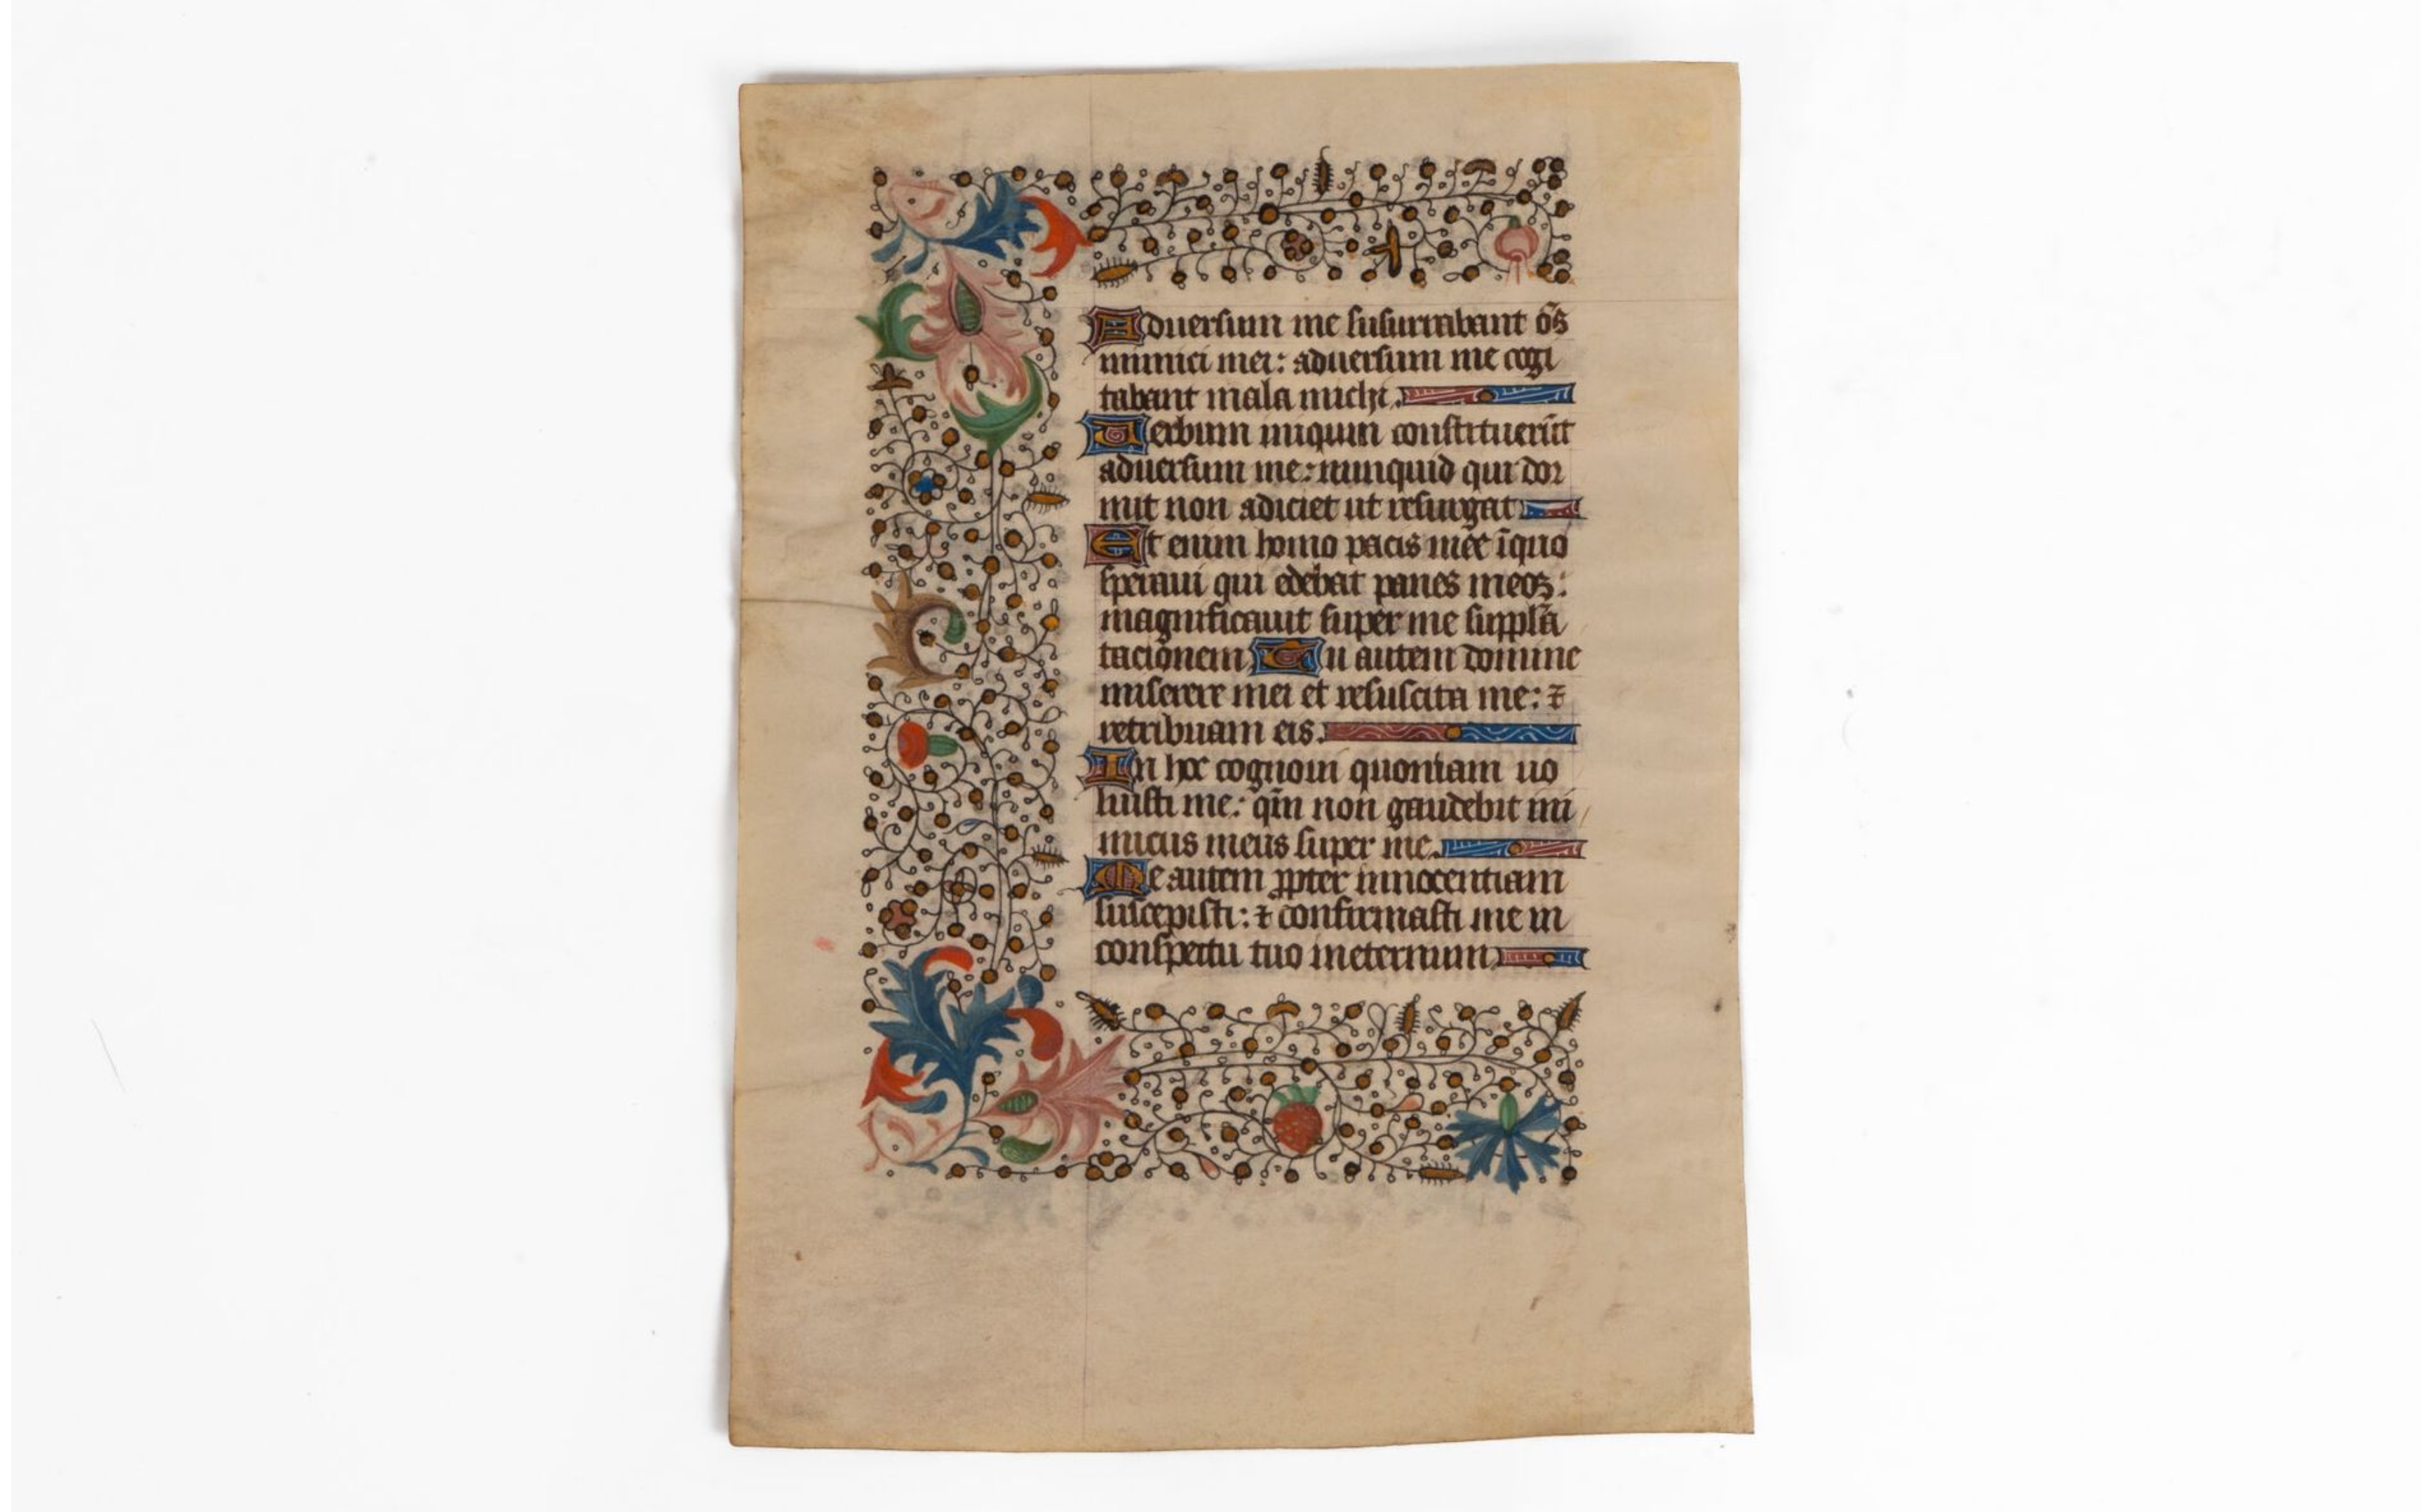 Aduersum me susurrabant om̅s
inimici mei: aduersum me cogi
tabant mala michi.
Uerbum iniqum constituerūt
aduersum me: nunquid qui dor
mit non adiciet ut resurgat
Et enim homo pacis mee īquo
speraui qui edebat panes meos:
magnificauit super me supplā
tacionem Tu autem domine
miserere mei et resuscita me: ⁊
retribuam eis.
In hoc cognoui quoniam uo
luisti me: qm̄ non gaudebit ini
micus meus super me.
Me autem ꝓpter innocentiam
suscepisti: ⁊ confirmasti me in
conspectu tuo ineternum